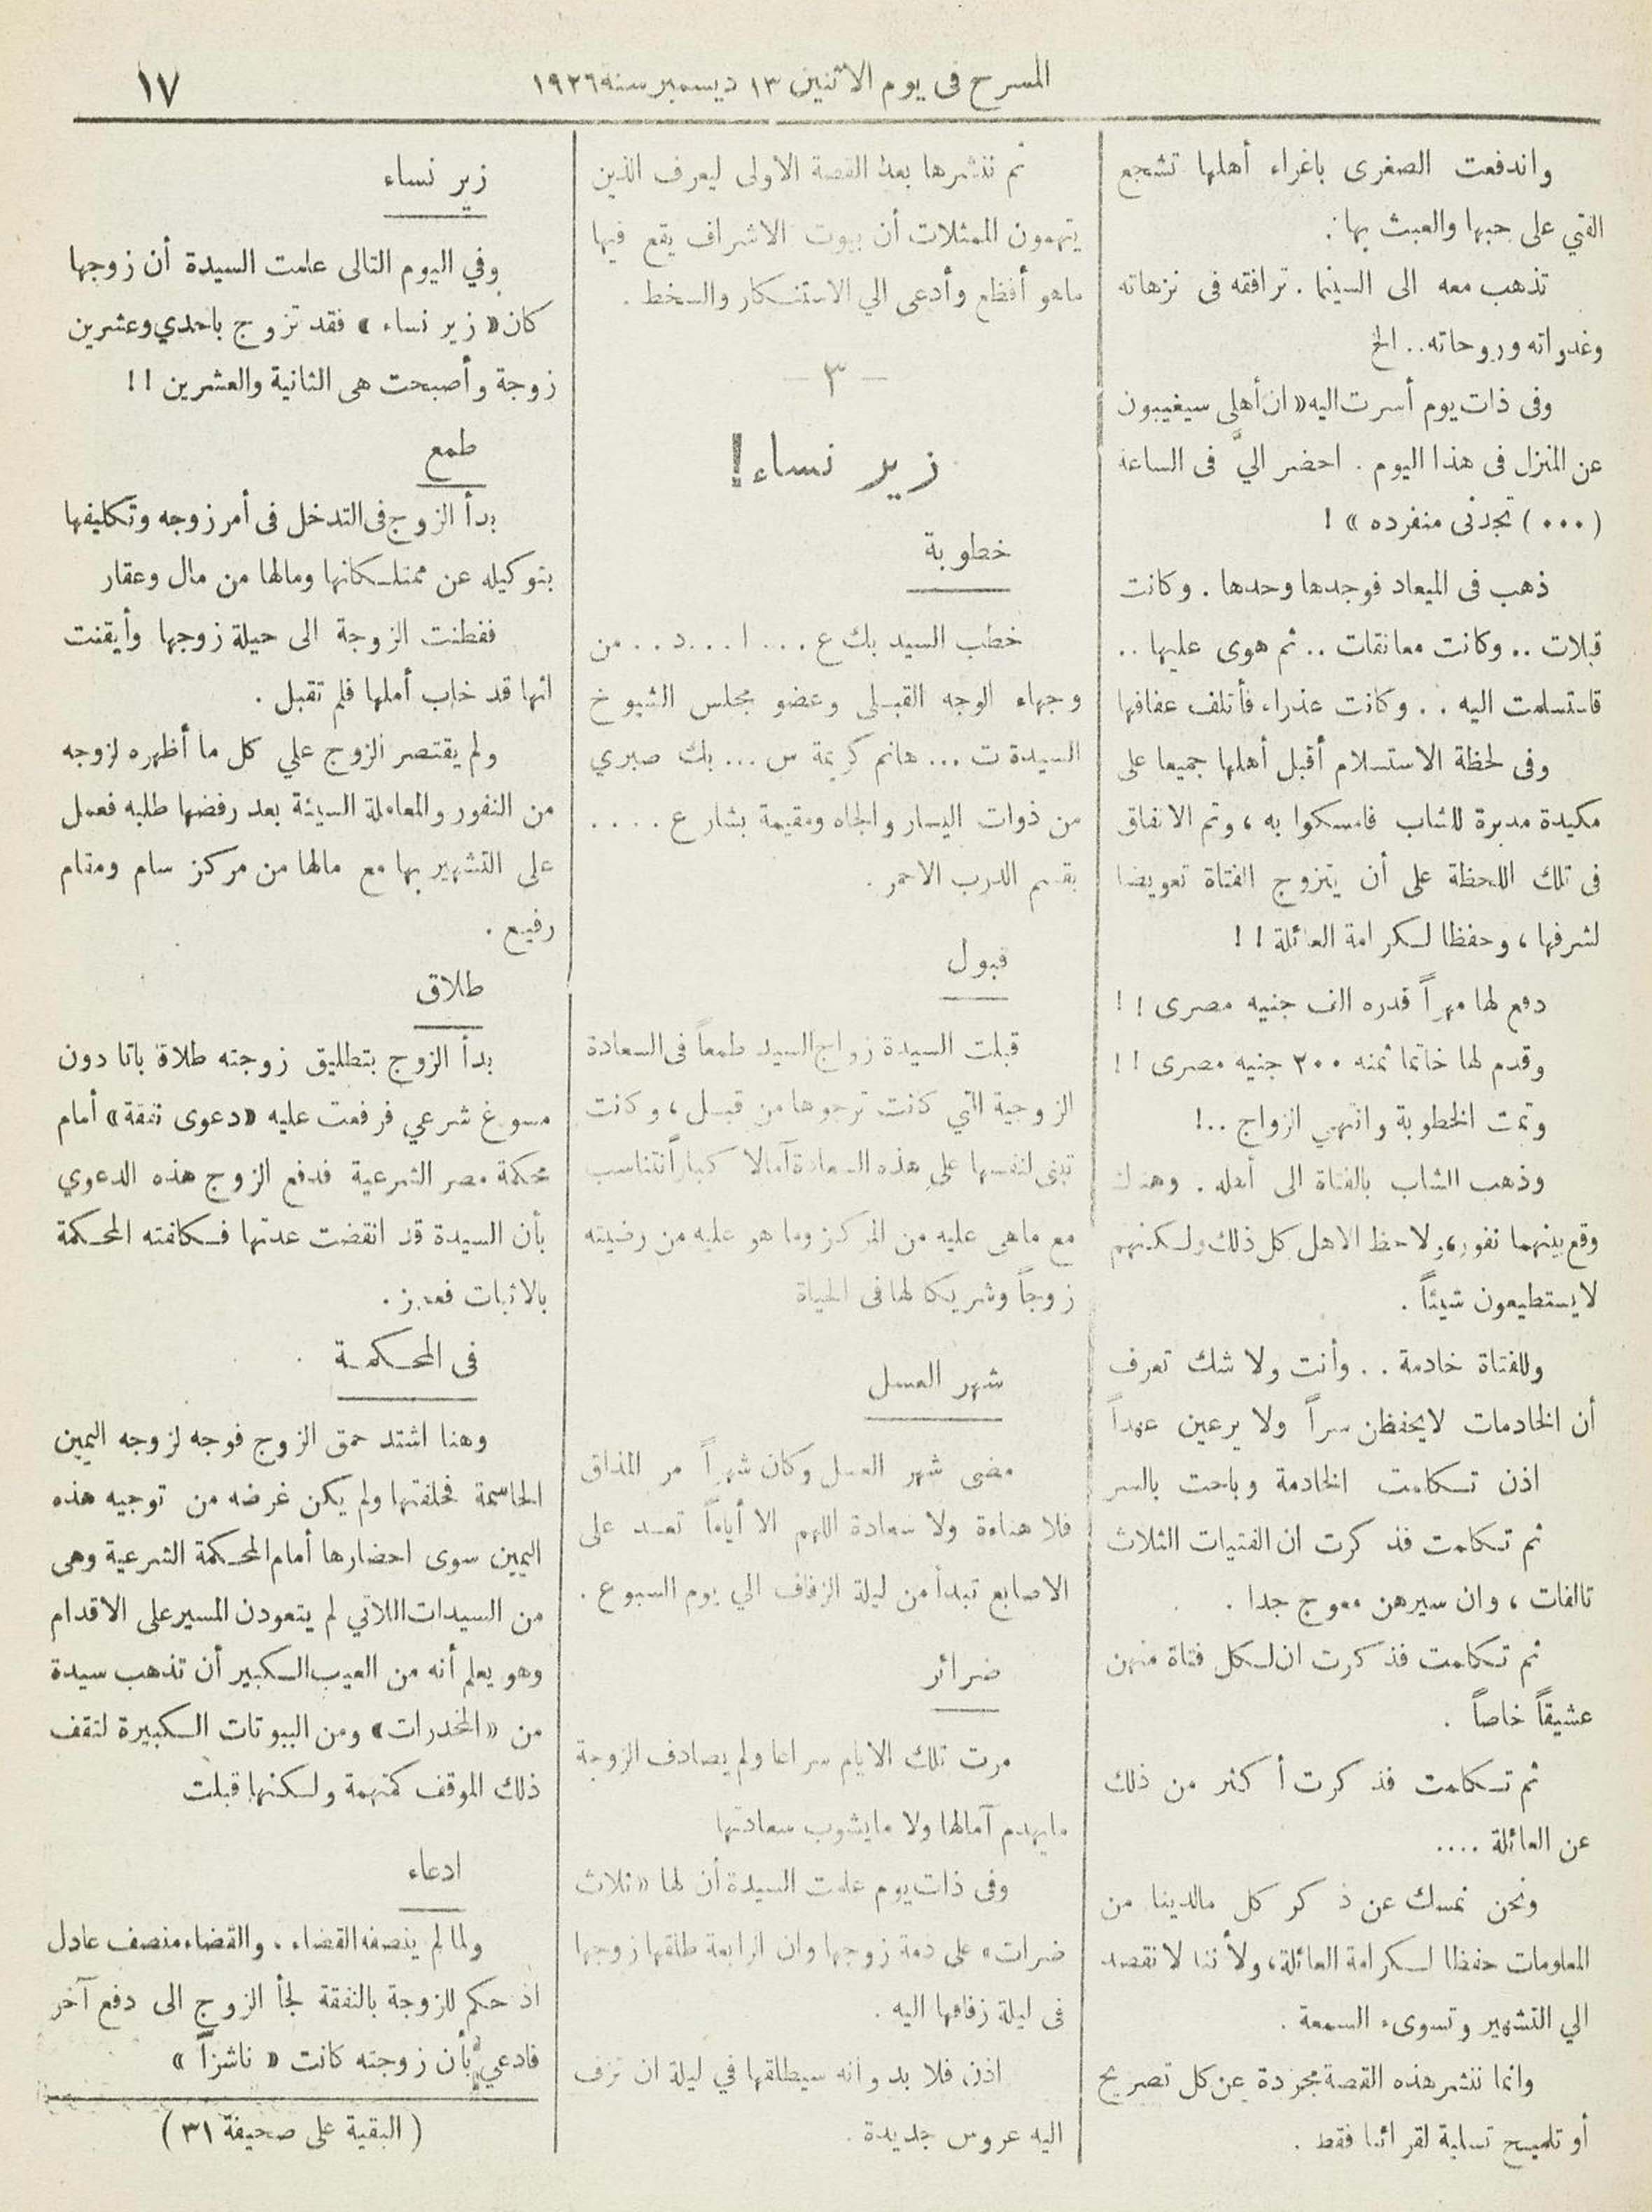 المسرح فى يوم الاثنين ١٣ ديسمبر سنة ١٩٢٦
١٧
واندفعت الصغرى باغراء أهلها تشجع
الفتي على حبها والعبث بها.
تذهب معه الى السينما . ترافقه فى نزهاته
وغدواته وروحاته.. الخ
وفى ذات يوم أسرت اليه «ان أهلى سيغيبون
عن المنزل فى هذا اليوم . احضر اليَّ فى الساعة
(٠٠٠) تجدنى منفرده» !
ذهب فى الميعاد فوجدها وحدها . وكانت
قبلات .. وكانت معانقات .. ثم هوى عليها ..
فاستسلمت اليه . . وكانت عذراء فأتلف عفافها
وفى لحظة الاستسلام أقبل أهلها جميعا على
مكيدة مدبرة للشاب فامسكوا به ، وتم الاتفاق
فى تلك اللحظة على أن يتزوج الفتاة تعويضا
لشرفها ، وحفظا لكرامة العائلة ! !
دفع لها مهراً قدره الف جنيه مصرى ! !
وقدم لها خاتما ثمنه ٢٠٠ جنيه مصرى ! !
وتمت الخطوبة وانتهي الزواج ..!
وذهب الشاب بالفتاة الى أهله . وهناك
وقع بينهما نفور، ولاحظ الاهل كل ذلك ولكنهم
لايستطيعون شيئاً .
وللفتاة خادمة . . وأنت ولا شك تعرف
أن الخادمات لايحفظن سراً ولا يرعين عهداً
اذن تكلمت الخادمة وباحت بالسر
ثم تكلمت فذكرت ان الفتيات الثلاث
تالفات ، وان سيرهن معوج جدا .
ثم تكلمت فذكرت ان لكل فتاة منهن
عشيقاً خاصاً .
ثم تكلمت فذكرت أكثر من ذلك
عن العائلة ....
ونحن نمسك عن ذكر كل مالدينا من
المعلومات حفظا لكرامة العائلة، ولأننا لانقصد
الي التشهير وتسوىء السمعة .
وانما ننشر هذه القصة مجردة عن كل تصريح
أو تلميح تسلية لقرائنا فقط .
ثم ننشرها بعد القصة الاولى ليعرف الذين
يتهمون الممثلات أن بيوت الاشراف يقع فيها
ماهو أفظع وأدعى الي الاستنكار والسخط .
— ٣ —
زير نساء!
خطوبة
خطب السيد بك ع ... ا ...د ... من
وجهاء الوجه القبلى وعضو مجلس الشيوخ
السيدة ت ... هانم كريمة س ... بك صبري
من ذوات اليسار والجاه ومقيمة بشارع ....
بقسم الدرب الاحمر .
قبول
قبلت السيدة زواج السيد طمعاً فى السعادة
الزوجية التي كانت ترجوها من قبل ، وكانت
تبنى لنفسها على هذه السعادة آمالا كباراً تتناسب
مع ماهى عليه من المركز وما هو عليه من رضيته
زوجاً وشريكا لها فى الحياة
شهر العسل
مضى شهر العسل وكان شهراً مر المذاق
فلا هناءة ولا سعادة اللهم الا أياماً تعد على
الاصابع تبدأ من ليلة الزفاف الي يوم السبوع .
ضرائر
مرت تلك الايام سراعا ولم يصادف الزوجة
مايهدم آمالها ولا مايشوب سعادتها
وفى ذات يوم علمت السيدة أن لها «ثلاث
ضرات» على ذمة زوجها وان الرابعة طلقها زوجها
فى ليلة زفافها اليه .
اذن فلا بد وانه سيطلقها في ليلة ان تزف
اليه عروس جديدة .
زير نساء
وفي اليوم التالى علمت السيدة أن زوجها
كان «زير نساء» فقد تزوج باحدي وعشرين
زوجة وأصبحت هى الثانية والعشرين ! !
طمع
بدأ الزوج فى التدخل فى أمر زوجه وتكليفها
بتوكيله عن ممتلكاتها ومالها من مال وعقار
ففطنت الزوجة الى حيلة زوجها وأيقنت
انها قد خاب أملها فلم تقبل .
ولم يقتصر الزوج علي كل ما أظهره لزوجه
من النفور والمعاملة السيئة بعد رفضها طلبه فعمل
على التشهير بها مع مالها من مركز سام ومقام
رفيع .
طلاق
بدأ الزوج بتطليق زوجته طلاقا باتا دون
مسوغ شرعي فرفعت عليه «دعوى نفقة» أمام
محكمة مصر الشرعية فدفع الزوج هذه الدعوي
بأن السيدة قد انقضت عدتها فكلفته المحكمة
بالاثبات فعجز .
فى المحكمة
وهنا اشتد حمق الزوج فوجه لزوجه اليمين
الحاسمة فحلفتها ولم يكن غرضه من توجيه هذه
اليمين سوى احضارها أمام المحكمة الشرعية وهى
من السيدات اللاتي لم يتعودن المسير على الاقدام
وهو يعلم أنه من العيب الكبير أن تذهب سيدة
من «المخدرات» ومن البيوتات الكبيرة لتقف
ذلك الموقف كمتهمة ولكنها قبلت
ادعاء
ولما لم ينصفه القضاء . والقضاء منصف عادل
اذ حكم للزوجة بالنفقة لجأ الزوج الى دفع آخر
فادعي بأن زوجته كانت «ناشزاً»
(البقية على صحيفة ٣١)